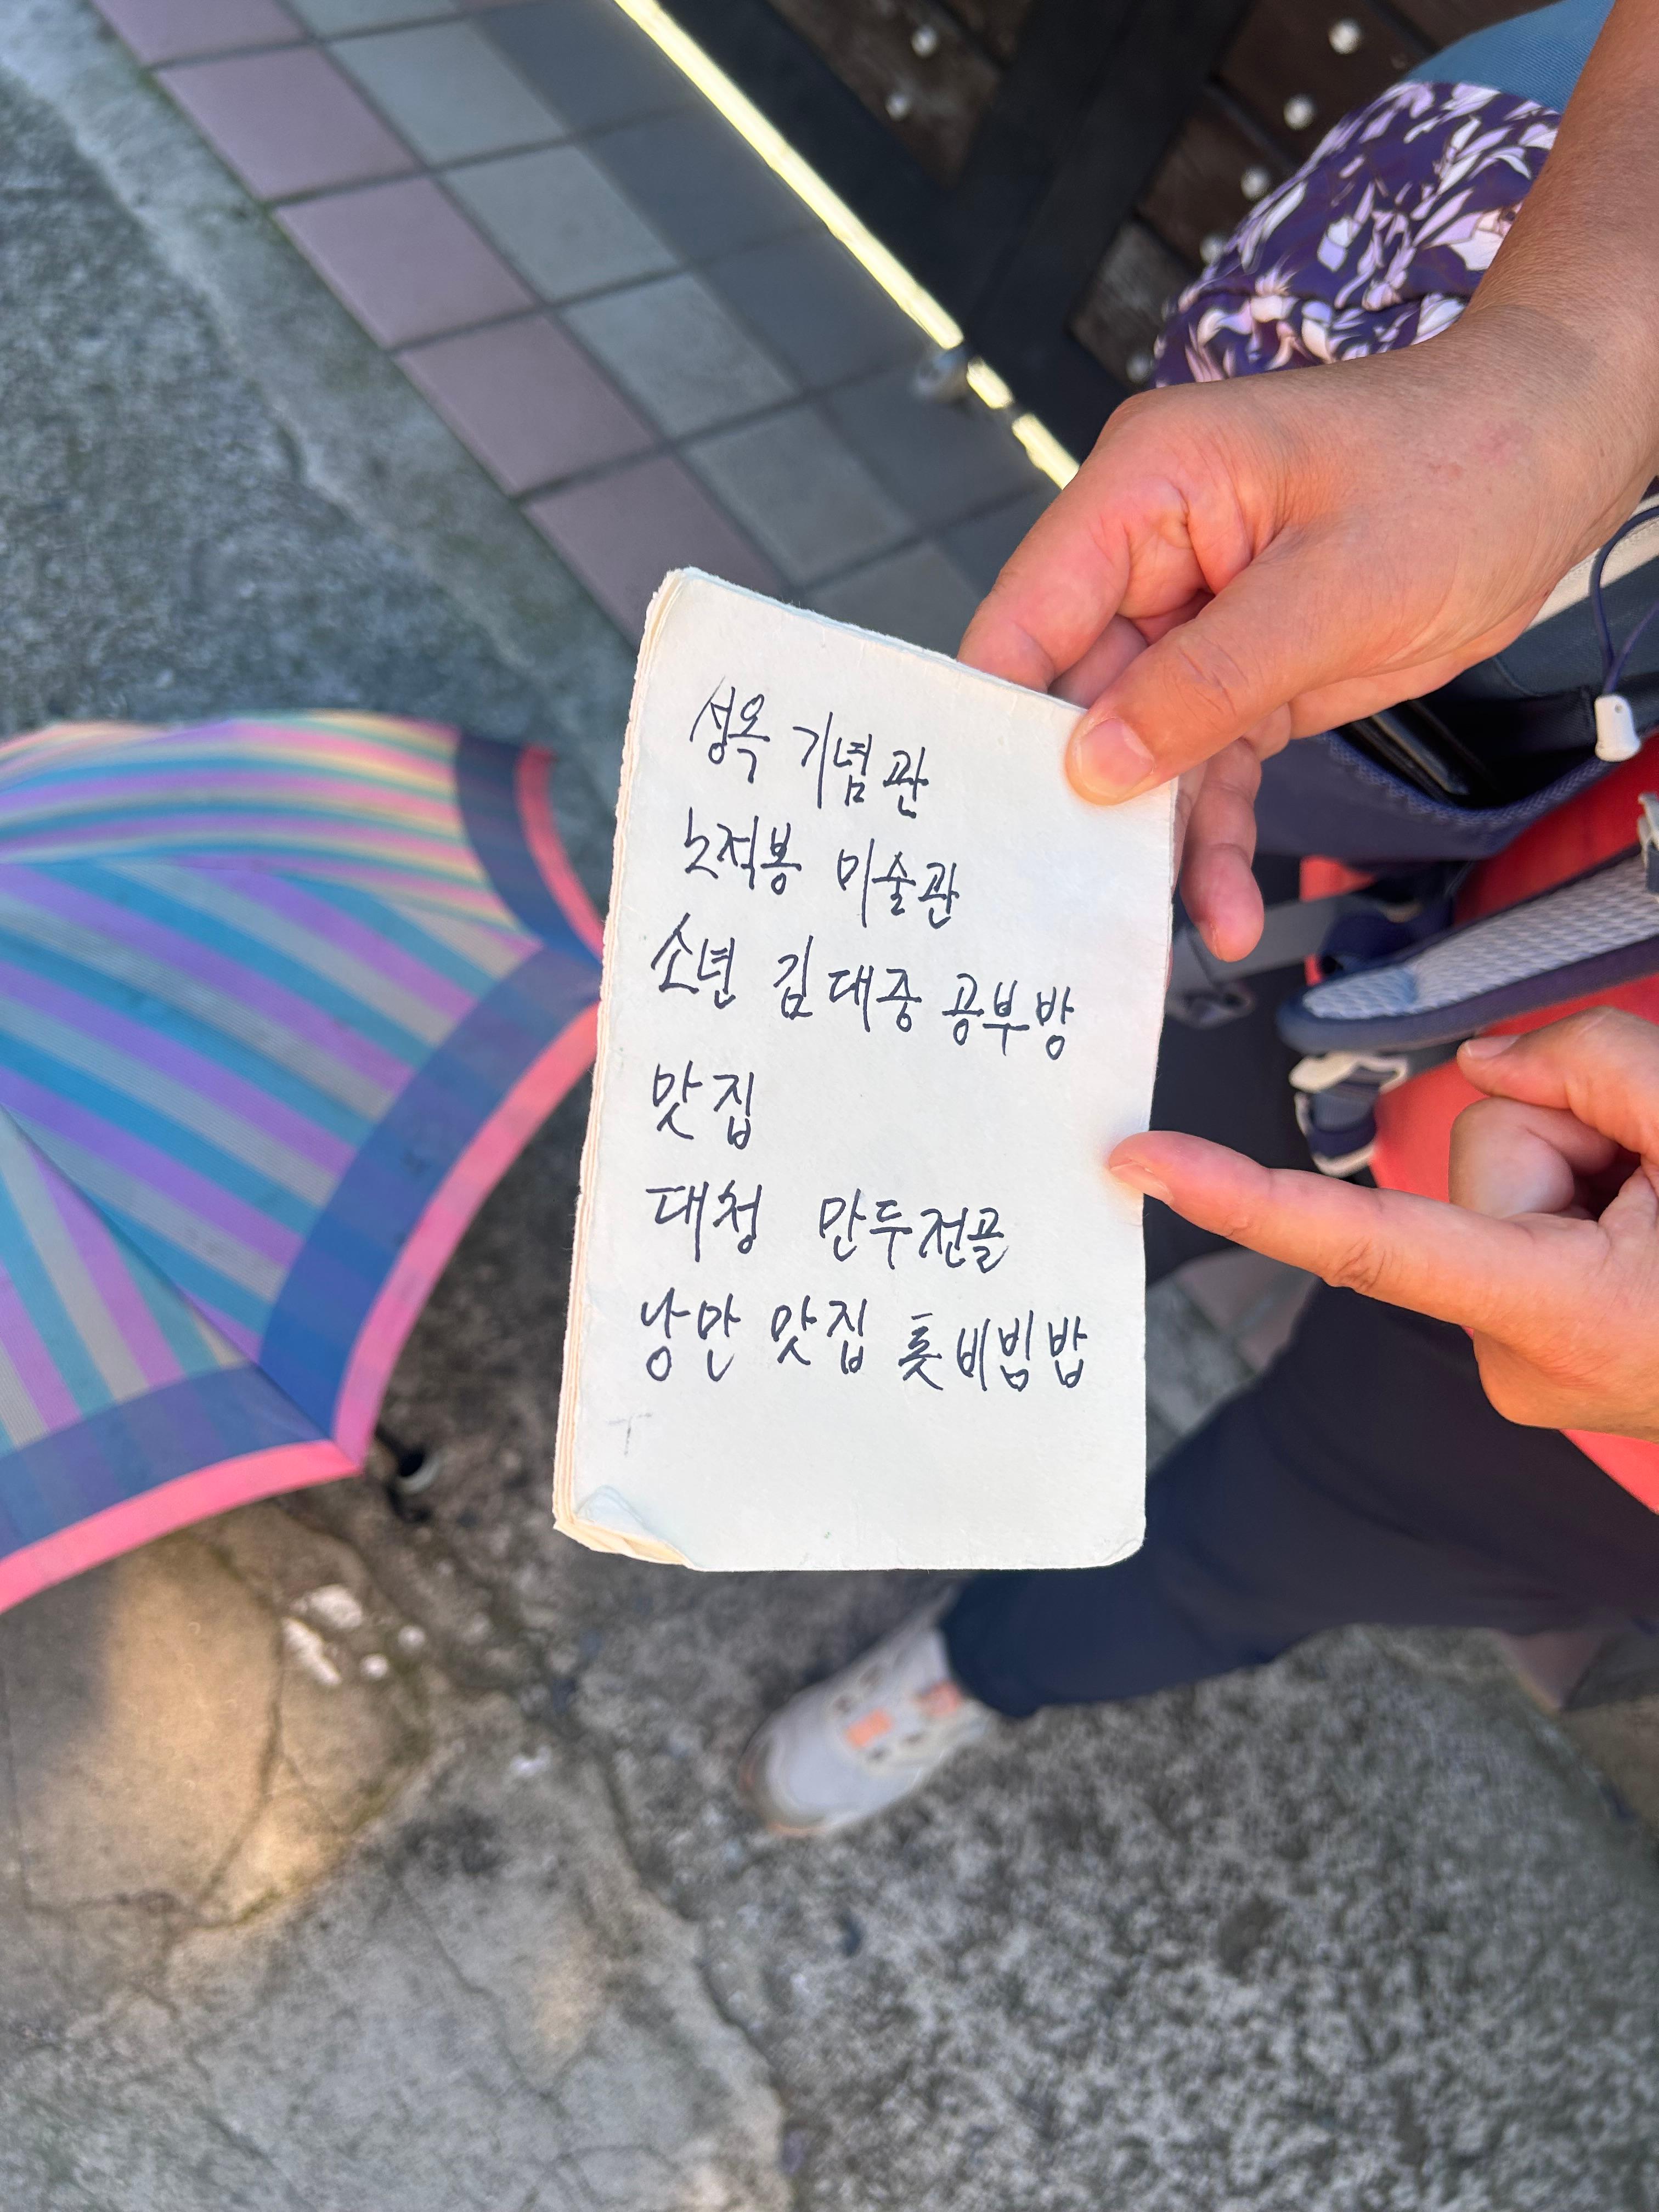 성옥 기념관
노적봉 미술관
소년 김대중 공부방
맛집
대청 만두전골
낭만 맛집 톳비빔밥